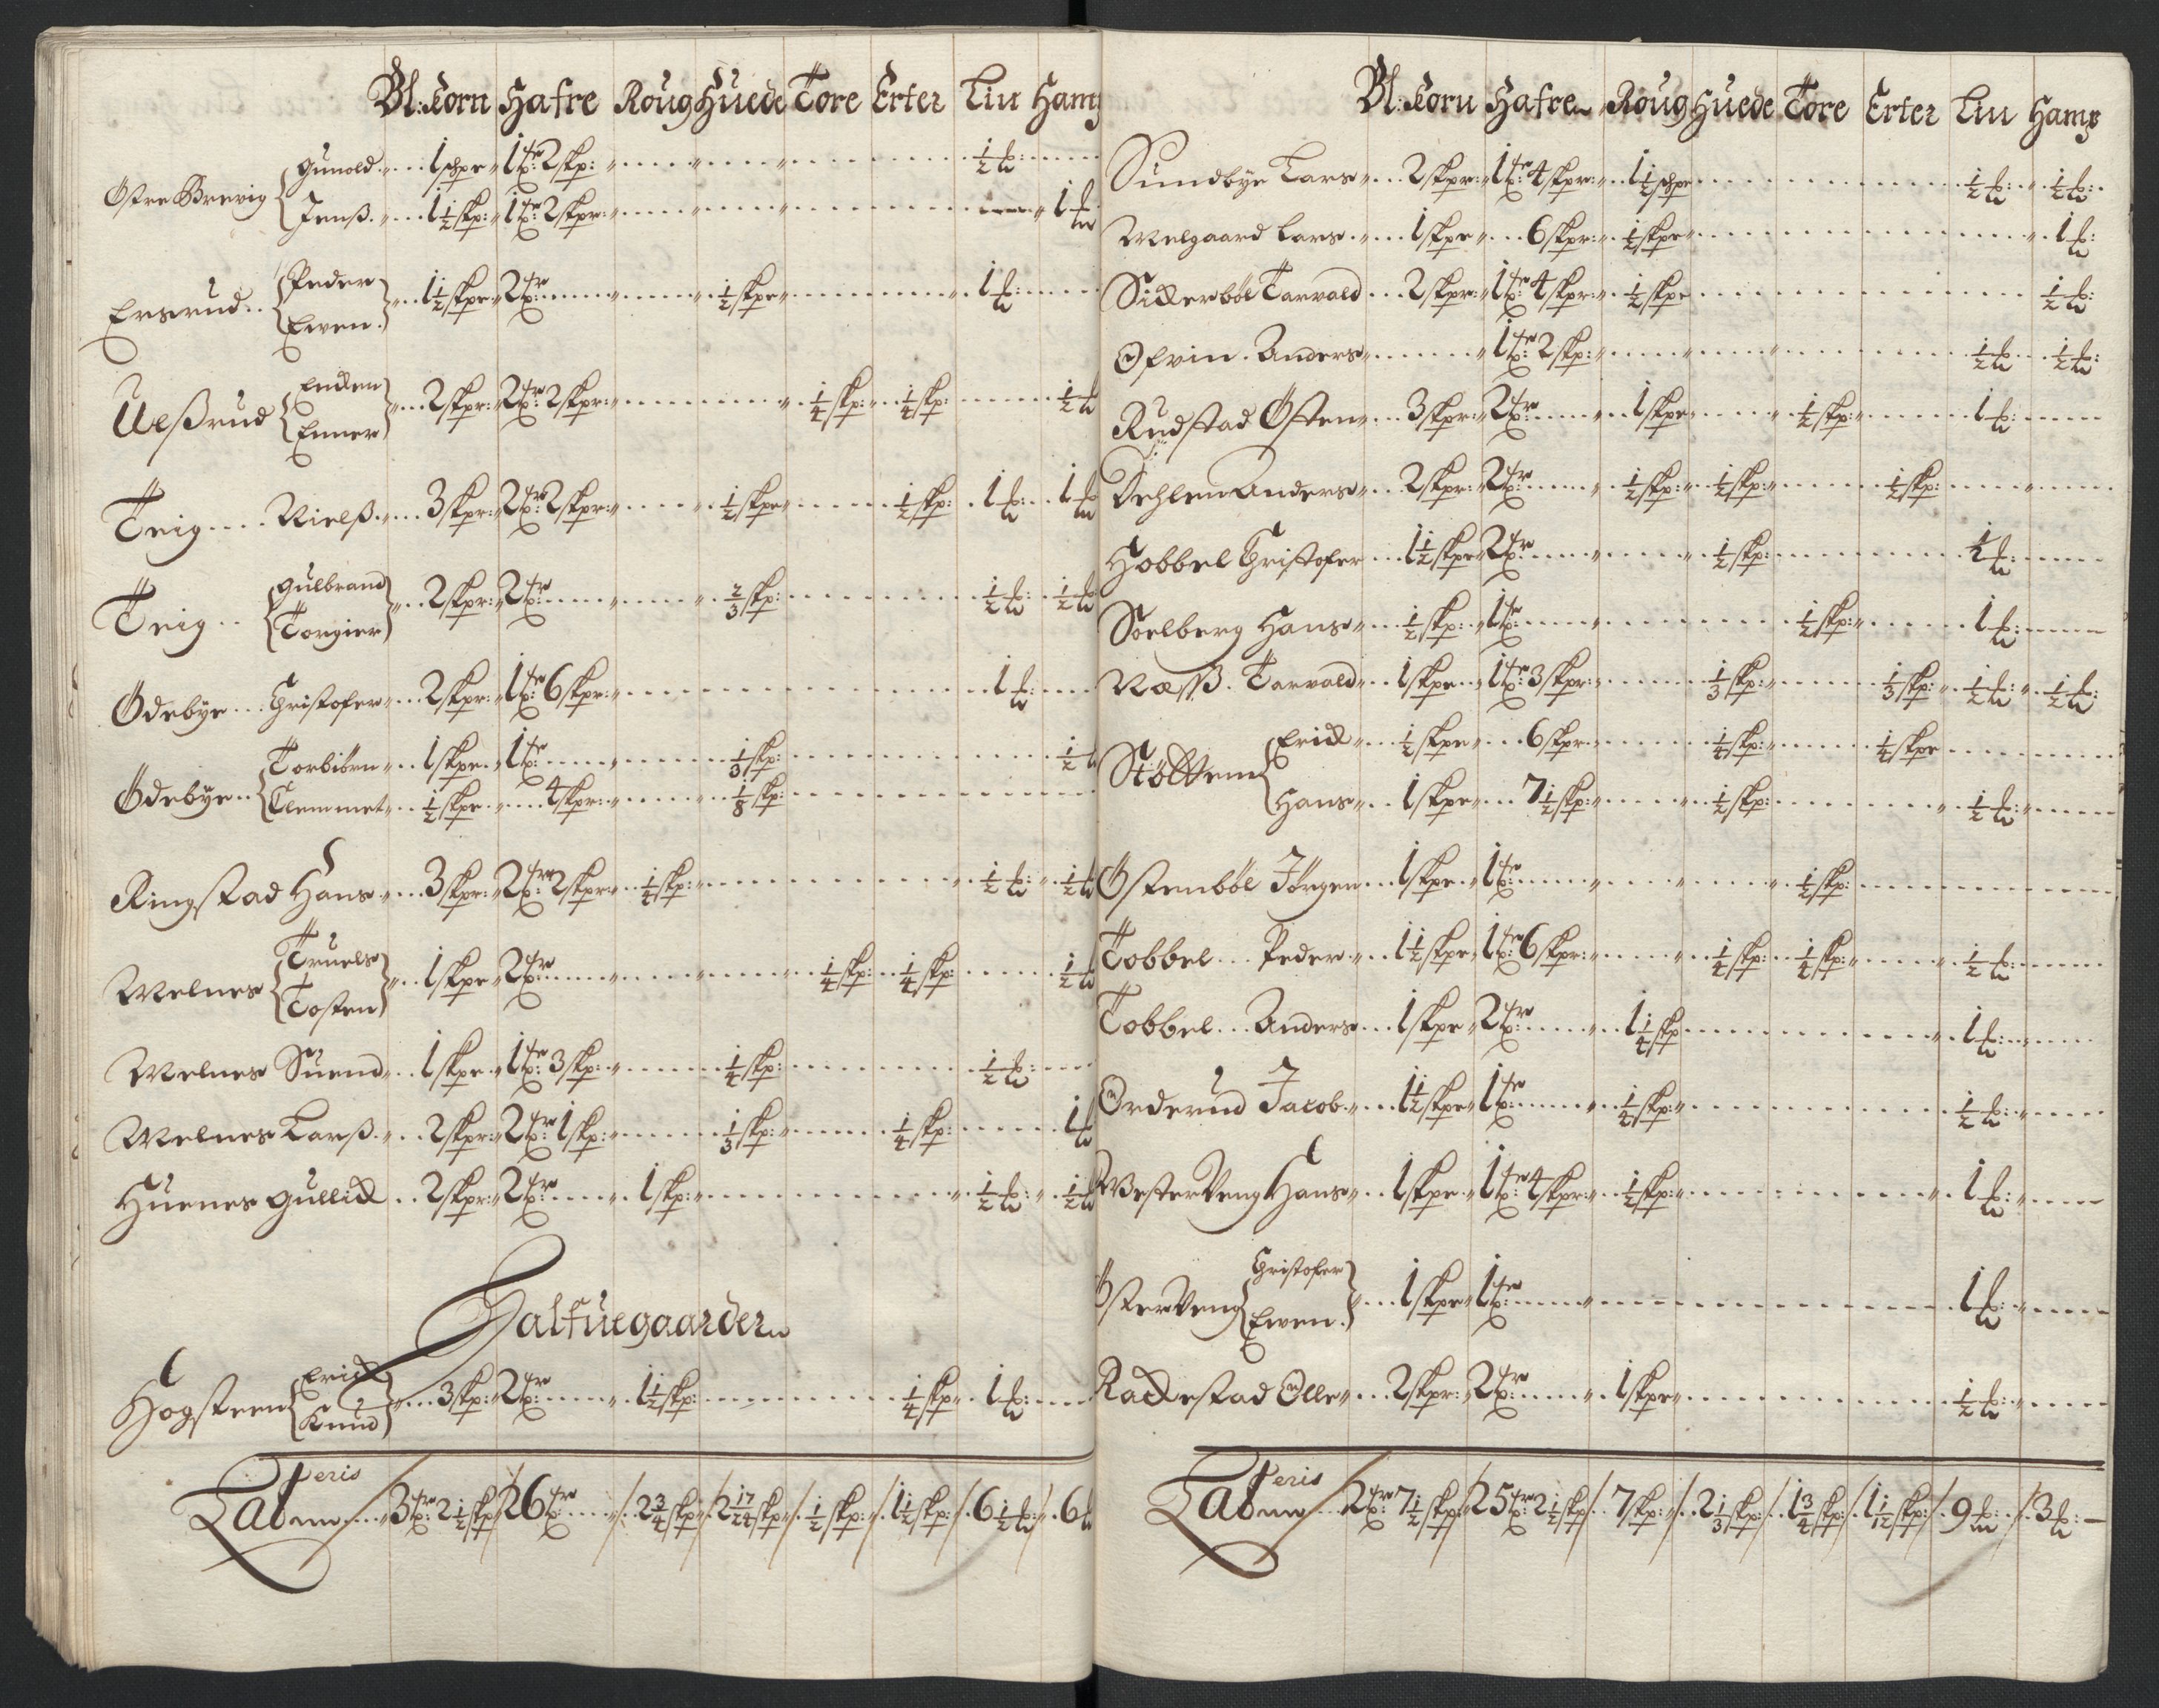 Bl: Korn Hafre Roug Huede Tore Erter Liu Hamp
Østre Brevig Gunold 1 schpe 1 tr: 2 skp: 1/2 lb:
Jenß 1 1/2 skp: 1 tr: 2 skpr: 1 lb
Ersrud Peder Ewen 1 1/2 skpe 2 tr: 1/2 skpe 1 lb:
Ueßrud Endten Enner 2 skpr: 2 tr: 2 skpr: 1/4 skp: 1/4 skp: 1/2 lb
Teig Nielß 3 skpr: 2 tr: 2 skpr: 1/2 skpe 1/2 skp: 1 lb: 1 lb
Teig Gulbrand Torgier 2 skpr: 2 tr: 2/3 skp: 1/2 lb: 1/2 lb
Ødebye Christofer 2 skpr: 1 tr: 6 skpr: 1 lb:
Ødebye Torbiörn 1 skpe 1 tr: 1/3 skp: 1/2 l
Clemmet 1/2 skpe 4 skpr: 1/8 skp:
Ringstad Hans 3 skpr: 2 tr: 2 skpr: 1/4 skp: 1/2 lb: 1/2 lb
Melnes Truels Tosten 1 skpe 2 tr: 1/4 skp: 1/4 skp: 1/2 lb
Melnes Suend 1 skpe 1 tr: 3 skp: 1/4 skp: 1/2 lb:
Melnes Larß 2 skpr: 2 tr: 1 skp: 1/3 skp: 1/4 skp: 1 lb
Huenes Gullich 2 skpr: 2 tr: 1 skp: 1/2 lb: 1/2 lb
Halfuegaarder
Hogsteen Erich Knud 3 skp: 2 tr: 1 1/2 skp: 1/4 skp: 1 lb:
Lateris 3 tr: 2 1/2 skp 26 tr: 2 3/4 skp 2 17/24 skp 1/2 skp: 1 1/2 skp: 6 1/2 lb: 6 lb
Bl: Korn Hafre Roug Huede Tore Erter Liu Hamp
Sundbye Lars 2 skpr: 1 tr: 4 skpr: 1 1/2 schpe 1/2 lb: 1/2 lb:
Melgaard Lars 1 skpe 6 skpr: 1/2 skpe 1 lb:
Sickerböl Tarvald 2 skpr: 1 tr: 4 skpr: 1/2 skpe 1/2 lb:
Ofvin Anders 1 tr: 2 skp: 1/2 lb: 1/2 lb:
Rudstad Østen 3 skpr: 2 tr: 1 skpe 1/2 skp: 1 lb:
Dehlen Anders 2 skpr: 2 tr: 1/2 skp: 1/2 skp: 1/2 skp:
Hobbel Christofer 1 1/2 skpe 2 tr: 1/2 skp: 1 lb:
Soelberg Hans 1/2 skp: 1 tr: 1/2 skp: 1 lb:
Næss Tarvald 1 skpe 1 tr: 3 skpr: 1/3 skp: 1/3 skp: 1/2 lb: 1/2 lb:
Stöttem Erich 1/2 skpe 6 skpr 1/4 skp: 1/4 skpe
Hans 1 skpe 7 1/2 skp: 1/2 skp: 1/2 lb:
Østenböl Jörgen 1 skpe 1 tr: 1/2 skp:
Tobbel Peder 1 1/2 skpe 1 tr: 6 skpr: 1/4 skp: 1/4 skp: 1/2 lb:
Tobbel Anders 1 skpe 2 tr: 1 1/4 skp 1 lb:
Orderud Jacob 1 1/2 skpe 1 tr: 1/4 skp: 1/2 lb:
Vester Veng Hans 1 skpe 1 tr: 4 skpr: 1/2 skp: 1 lb:
Øster Veng Christofer Ewen 1 skpe 1 tr: 1 lb:
Rackestad Olle 2 skpr: 2 tr: 1 skpe 1/2 lb:
Lateris 2 tr: 7 1/2 skp: 25 tr: 2 1/2 skp 7 skp: 2 1/3 skp: 1 3/4 skp: 1 1/12 skp: 9 lb: 3 lb: